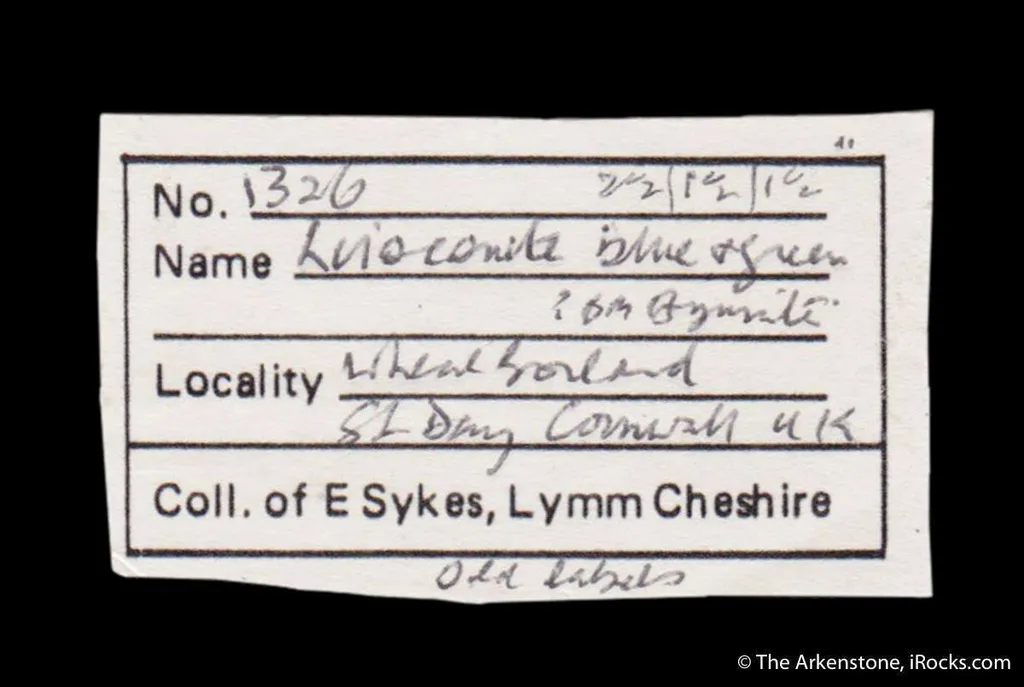 41
No. 1326 2½ | 1½ | 1½
Name Liroconite blue + green
Locality Wheal Gorland
St Day Cornwall UK
Coll. of E Sykes, Lymm Cheshire
Old labels
© The Arkenstone, iRocks.com